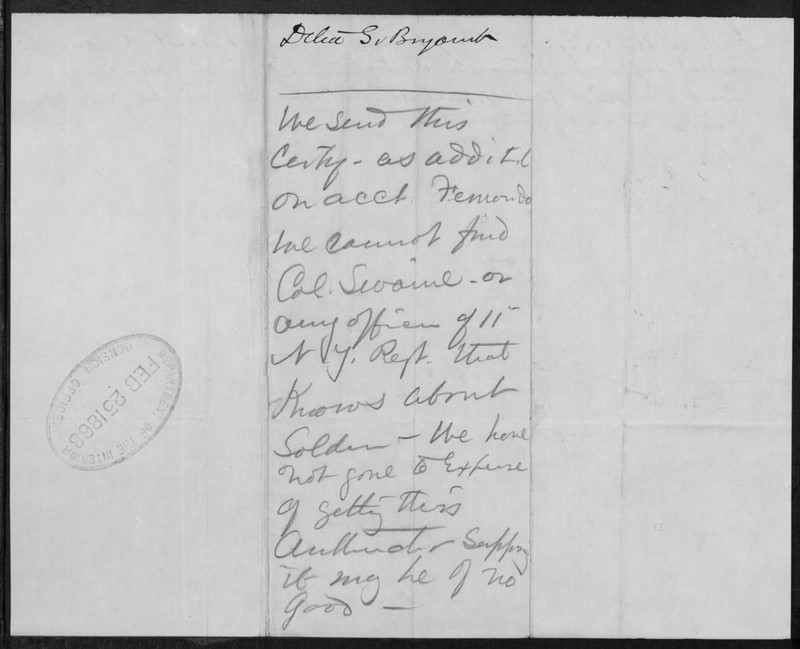 Delia S. Bryant
We send this
Certf - as addit'l
on acct
We cannot find
Col. Swaine - or
any officer of 11"
N.Y. Regt. that
Knows about
Soldier - We have
not gone to Expense
of getting this
it may be of no
Good -
DEPARTMENT OF THE INTERIOR
PENSION OFFICE
FEB 25 1863